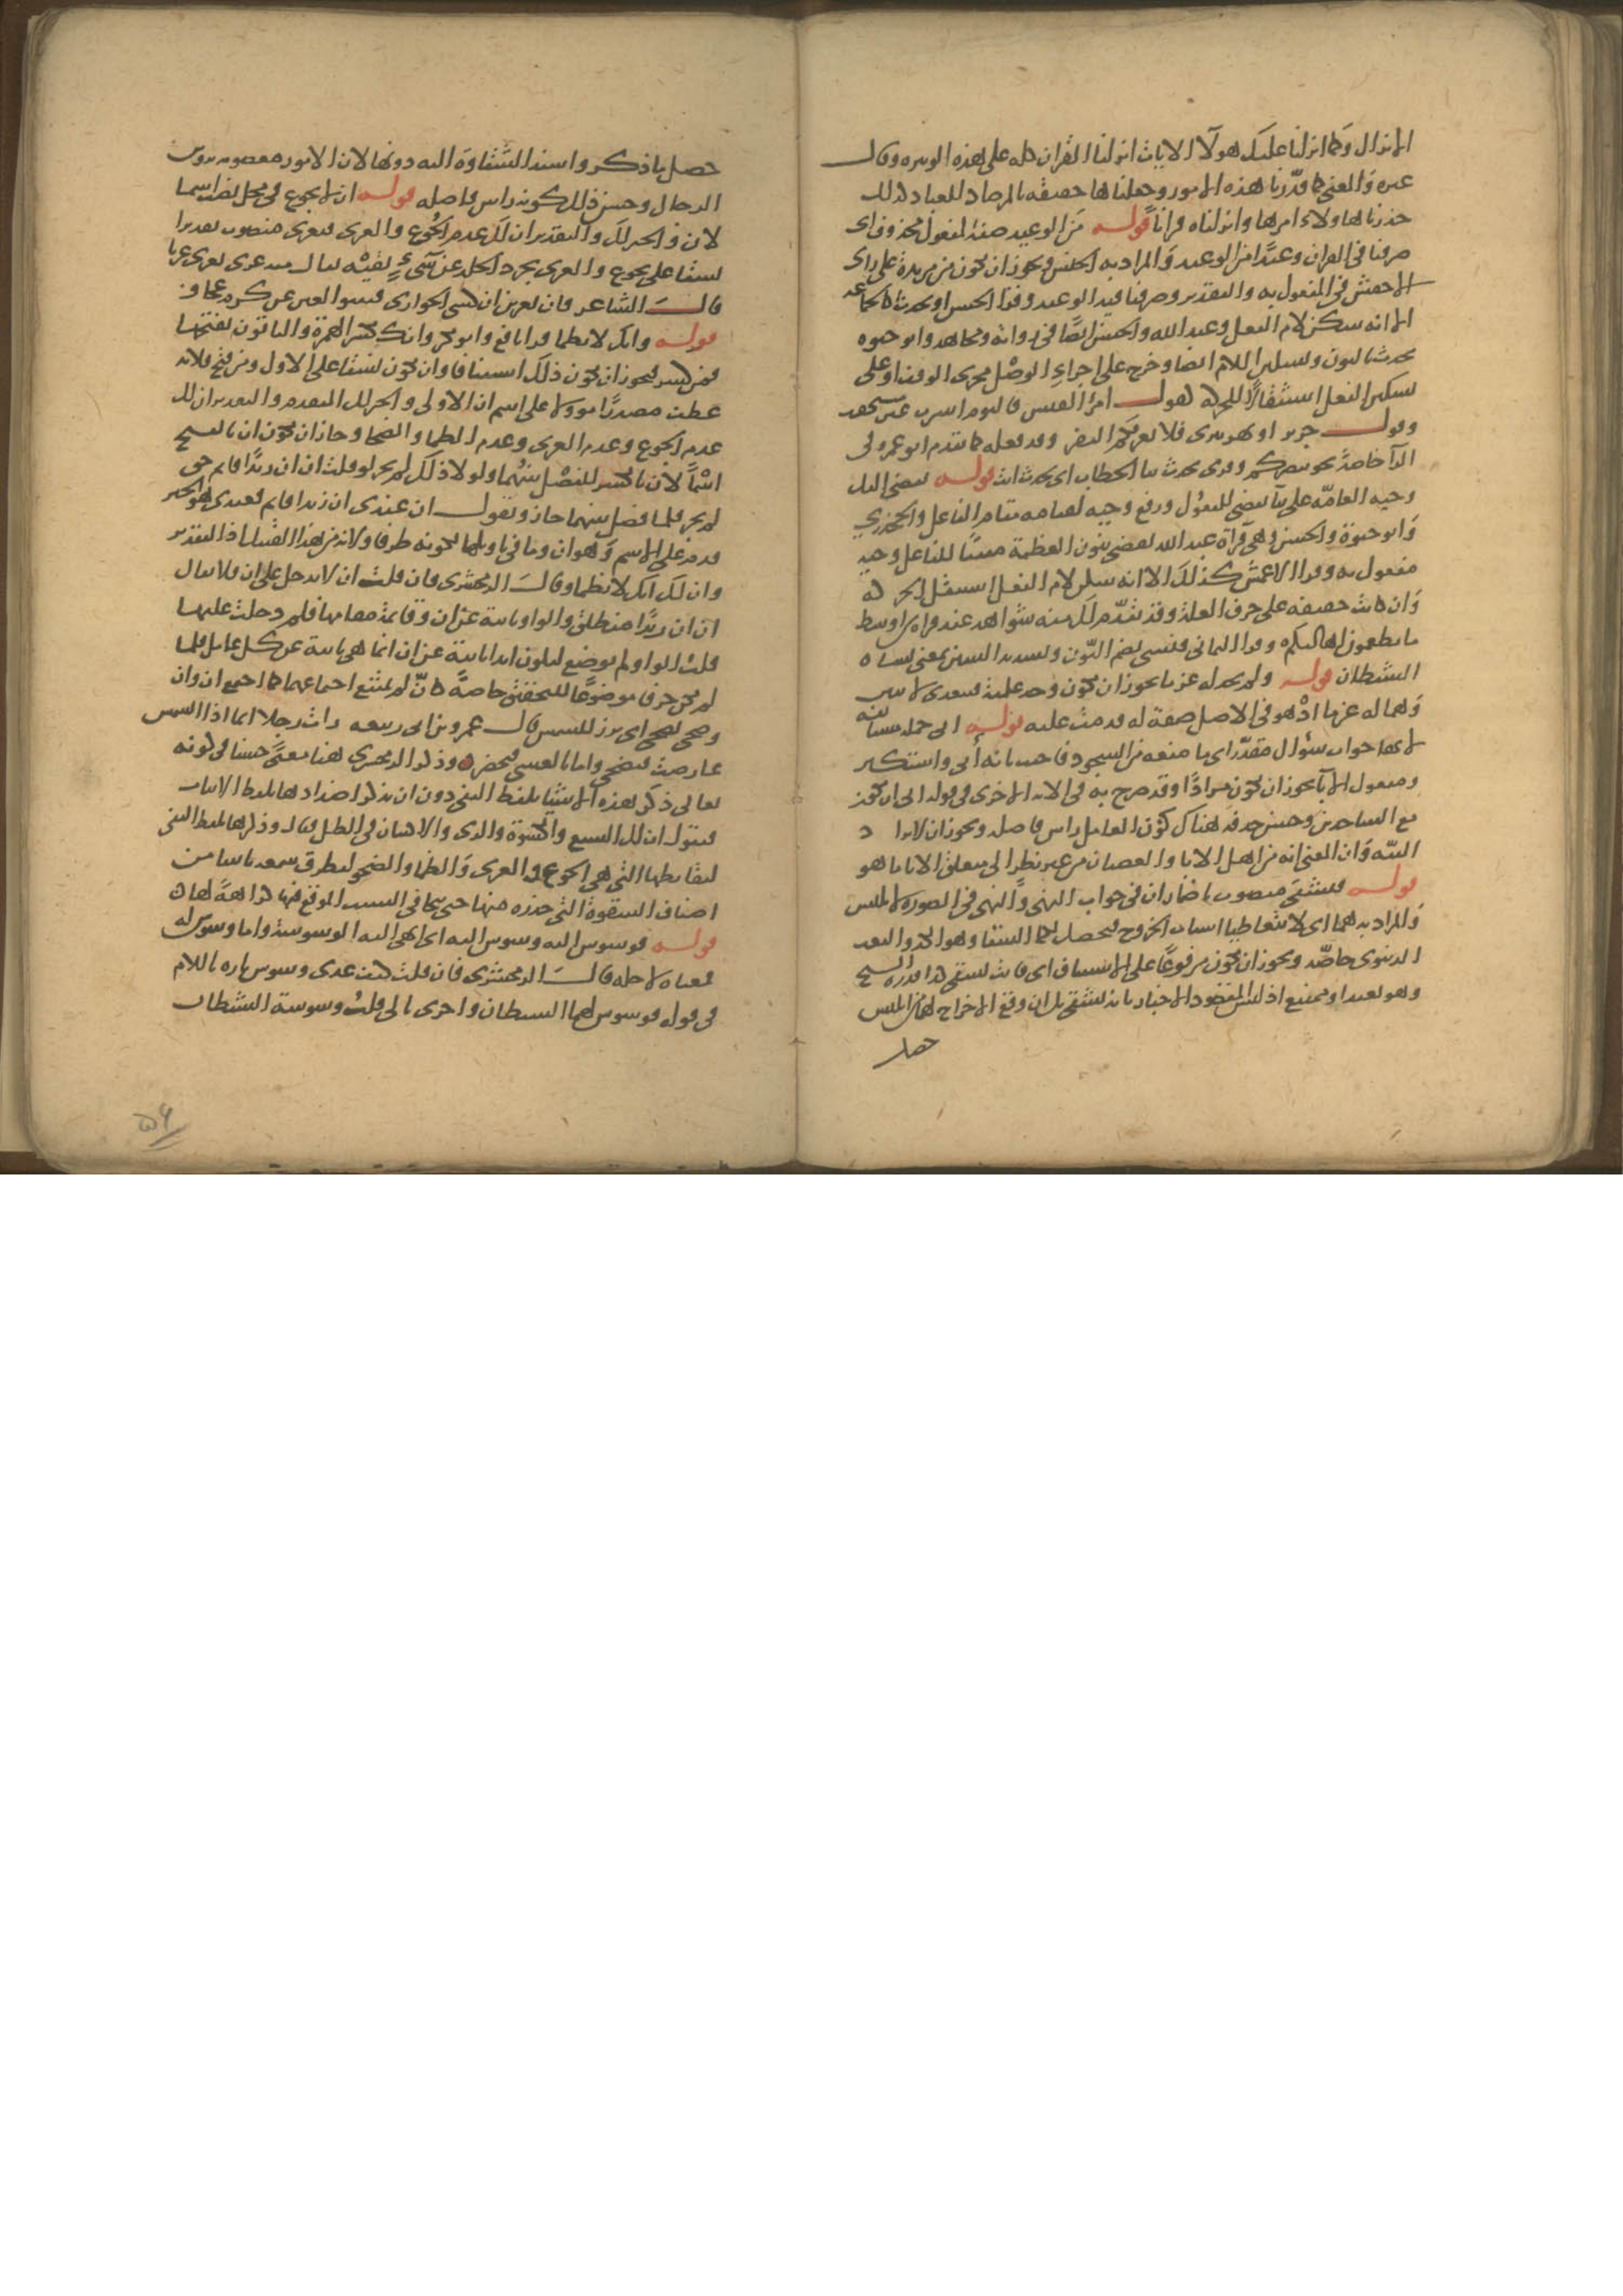 الانزال وكما انزلنا عليك هولا الايات انزلنا القران كله على هذه الوتيره وقال
غيره والمعنى كما قدرنا هذه الامور وجعلناها حقيقه بالمرصاد للعباد كذلك
حذرنا هاولاء امرها وانزلناه قرانا قوله من الوعيد صفة لمفعول محذوف اى
صرفنا فى القران وعيدا من الوعيد والمراد به الجنس ويجوز ان تكون من مزيدة على راى
الاخفش فى المفعول به والتقدير وصرفنا فيه الوعيد وقرا الحسن او يحدث كالجماعه
الا انه سكن لام الفعل وعبد الله والحسن ايضا فى رواية ومجاهد وابو حيوه
نحدث بالنون وتسكين اللام ايضا وخرج على اجراء الوصل مجرى الوقف او على
تسكين الفعل استثقالا للحركه كقول امرؤ القيس فاليوم اشرب غير مستحقب
وقول جرير او نهر تيرى فلا تعرفكم العرب وقد فعله كما تقدم ابو عمرو فى
الرا خاصة نحو ينصركم وقرى تحدث بتا الخطاب اى تحدث انت قوله يقضى اليك
وحيه العامه على بنا يقضى للمفعول ورفع وحيه لقيامه مقام الفاعل والجحدري
وابو حيوة والحسن وهى قراة عبد الله نقضى بنون العظمة مبنيا للفاعل وحيه
مفعول به وقرا الاعمش كذلك الا انه سكن لام الفعل استثقل الحركه
وان كانت خفيفه على حرف العلة وقد تقدم لك منه شواهد عند قراة من اوسط
ما تطعمون اهاليكم وقرا اليمانى فنسى بضم النون وتشديد السين بمعنى نساه
الشيطان قوله ولم نجد له عزما يجوز ان تكون وجد علمية فيتعدى لاثنين
وهما له عزما اذ هو فى الاصل صفة له قدمت عليه قوله ابى جملة مستانفه
لانها جواب سؤال مقدر اى ما منعه من السجود فاجيب بانه أبى واستكبر
ومفعول الابا يجوز ان تكون مرادا وقد صرح به فى الايه الاخرى فى قوله ابى ان تكون
مع الساجدين وحسن حذفه هناك كون العامل راس فاصله ويجوز ان لا يراد
البته وان المعنى انه من اهل الابا والعصيان من غير نظر الى متعلق الابا ما هو
قوله فتشقى منصوب باضمار ان فى جواب النهى والنهى فى الصورة لابليس
والمراد به هما اى لا تتعاطيا اسباب الخروج فيحصل لكما الشقا وهو الكد والتعب
الدنيوى خاصه ويجوز ان تكون مرفوعا على الاستيناف اى فانت تشقى كذا قدره الشيخ
وهو بعيد او ممتنع اذ ليس المقصود الاخبار بانه تشقى بل ان وقع الاخراج لهما من ابليس
حصل
حصل ما ذكر واسند الشقاوة اليه دونها لان الامور معصوبه بروس
الرجال وحسن ذلك كونه راس فاصله قوله ان لا تجوع فى محل نصب اسما
لان والخبر لك والتقدير ان لك عدم الجوع والعرى وتعرى منصوب تقديرا
نسقا على تجوع والعرى تجرد الجلد عن شىء يقيه يقال منه عرى يعرى عريا
قال الشاعر فان يعرين ان كسى الجوارى فتنبوا العين عن كرم عجاف
قوله وانك لا تظما قرا نافع وابو بكر وانك بكسر الهمزة والباقون بفتحها
فمن كسر فيجوز ان تكون ذلك استينافا وان تكون نسقا على الاول ومن فتح فلانه
عطف مصدرا مؤولا على اسم ان الاولى والخبر لك المتقدم والتقدير ان لك
عدم الجوع وعدم العرى وعدم الظما والضحا وجاز ان تكون ان بالفتح
اسما لان بالكسر للفصل بينهما ولولا ذلك لم يجز لو قلت ان ان زيدا قايم حق
لم يجز فلما فصل بينهما جاز وتقول ان عندى ان زيدا قايم فعندى هو الخبر
قدم على الاسم وهو ان وما فى تاويلها لكونه ظرفا والاية من هذا القبيل اذ التقدير
وان لك انك لا تظما وقال الزمخشرى فان قلت ان لا تدخل على ان فلا يقال
ان ان زيدا منطلق والواو نايبة عن ان وقايمة مقامها فلم دخلت عليها
قلت الواو لم توضع لتكون ابدا نايبة عن ان انما هى نايبة عن كل عامل فلما
لم تكن حرفا موضوعا للتحقيق خاصة كان لم يمتنع اجتماعهما كما اجتمع ان وان
وضحى يضحى اى برز للشمس قال عمرو بن ابى ربيعه رات رجلا ايما اذا الشمس
عارضت فيضحى واما بالعشى فيخصر وذكر الزمخشري هنا معنى حسنا فى كونه
تعالى ذكر هذه الاشيا بلفظ النفى دون ان يذكر اضدادها بلفظ الاثبات
فيقول ان لك الشبع والكسوة والرى والاكتنان فى الظل فقال وذكرها بلفظ النفى
لنقايضها التى هى الجوع والعرى والظما والضحو ليطرق سمعه باسامى
اصناف الشقوة التى حذره منها حتى يتحامى السبب الموقع فيها كراهة لها
قوله فوسوس اليه وسوس اليه اى انهى اليه الوسوسة واما وسوس له
فمعناه لاجله قال الزمخشرى فان قلت كيف عدى وسوس تاره باللام
فى قوله فوسوس لهما الشيطان واخرى بالى قلت وسوسة الشيطان
۵۶